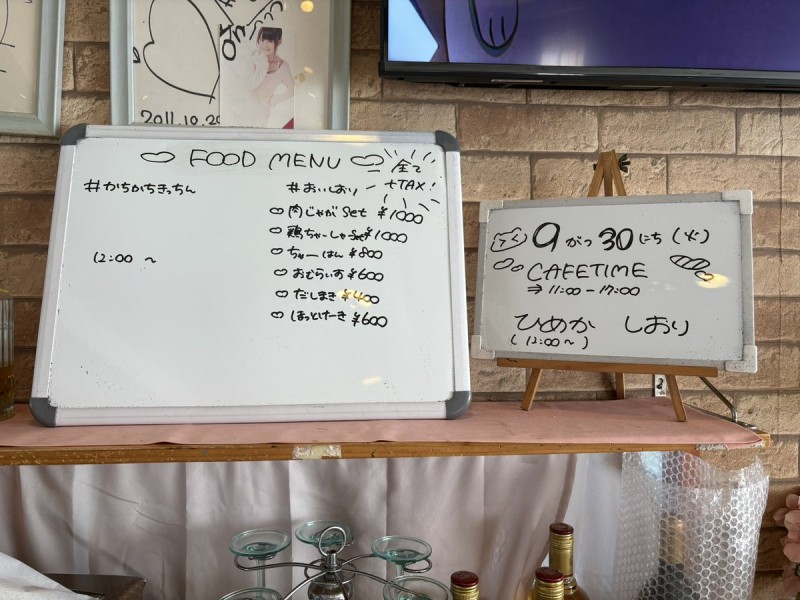 2011.10.20
FOOD MENU
全て
+TAX!
#かちかちきっちん
12:00 ~
#おいしおり
肉じゃが Set ¥1000
鶏ちゃーしゅー Set ¥1000
ちゃーはん ¥800
おむらいす ¥600
だしまき ¥400
ほっとけーき ¥600
9がつ30にち(火)
CAFETIME
⇒ 11:00 - 17:00
ひめか しおり
(12:00~)